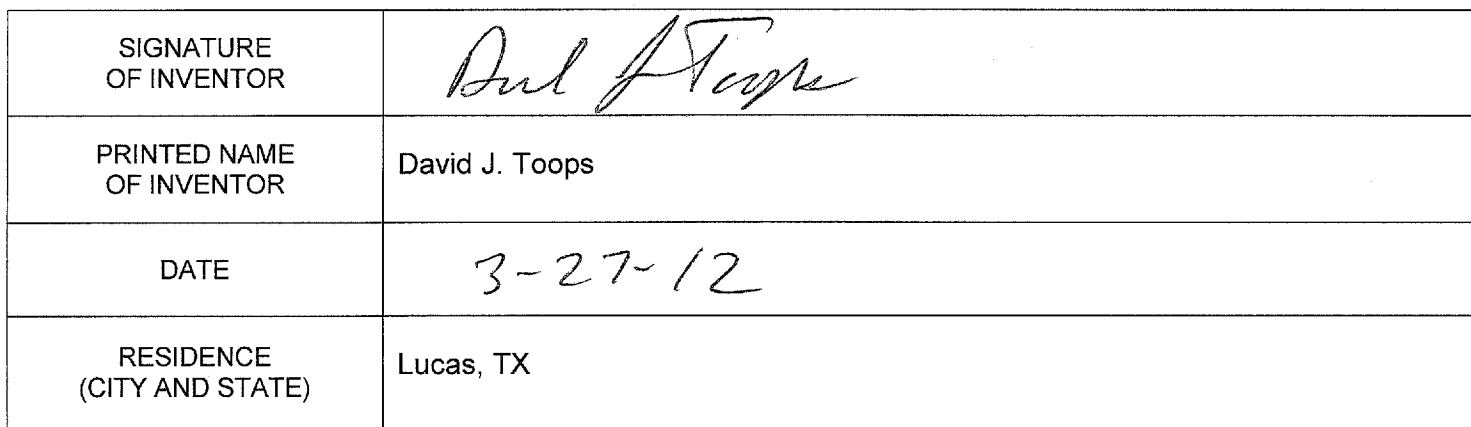 SIGNATURE
OF INVENTOR
David J Toops
PRINTED NAME
OF INVENTOR
David J. Toops
DATE
3-27-12
RESIDENCE
(CITY AND STATE)
Lucas, TX